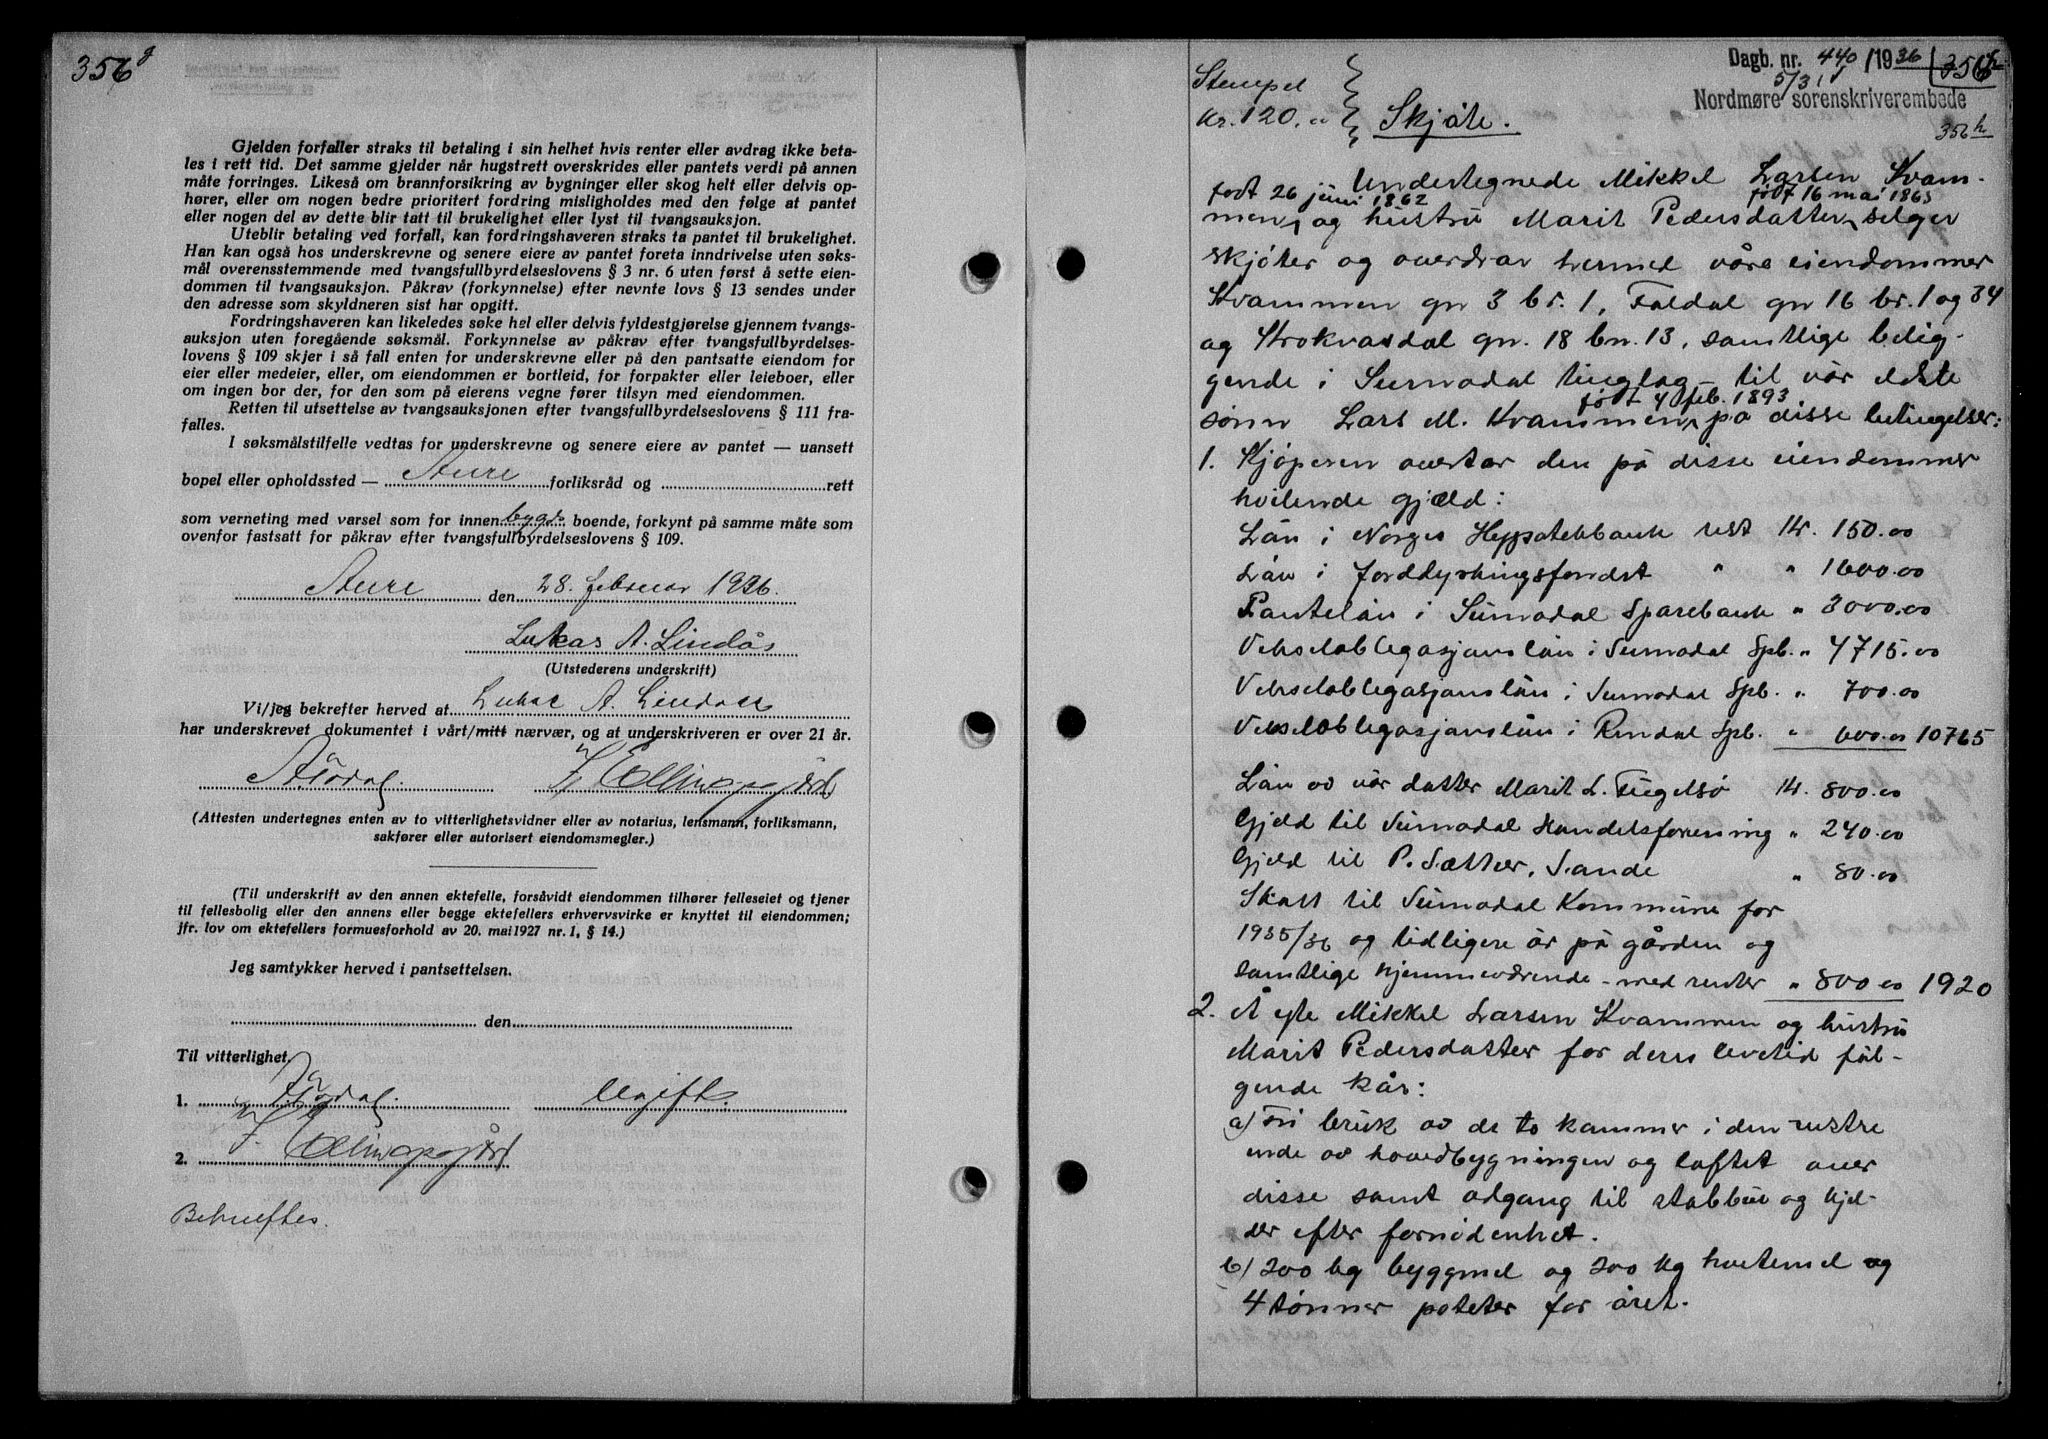 356 g
Gjelden forfaller straks til betaling i sin helhet hvis renter eller avdrag ikke beta-
les i rett tid. Det samme gjelder når hugstrett overskrides eller pantets verdi på annen
måte forringes. Likeså om brannforsikring av bygninger eller skog helt eller delvis op-
hører, eller om nogen bedre prioritert fordring misligholdes med den følge at pantet
eller nogen del av dette blir tatt til brukelighet eller lyst til tvangsauksjon.
Uteblir betaling ved forfall, kan fordringshaveren straks ta pantet til brukelighet.
Han kan også hos underskrevne og senere eiere av pantet foreta inndrivelse uten søks-
mål overensstemmende med tvangsfullbyrdelseslovens § 3 nr. 6 uten først å sette eien-
dommen til tvangsauksjon. Påkrav (forkynnelse) efter nevnte lovs § 13 sendes under
den adresse som skyldneren sist har opgitt.
Fordringshaveren kan likeledes søke hel eller delvis fyldestgjørelse gjennem tvangs-
auksjon uten foregående søksmål. Forkynnelse av påkrav efter tvangsfullbyrdelses-
lovens § 109 skjer i så fall enten for underskrevne eller på den pantsatte eiendom for
eier eller medeier, eller, om eiendommen er bortleid, for forpakter eller leieboer, eller
om ingen bor der, for den som på eierens vegne fører tilsyn med eiendommen.
Retten til utsettelse av tvangsauksjonen efter tvangsfullbyrdelseslovens § 111 fra-
falles.
I søksmålstilfelle vedtas for underskrevne og senere eiere av pantet — uansett
bopel eller opholdssted — Aure forliksråd og rett
som verneting med varsel som for innenbygds boende, forkynt på samme måte som
ovenfor fastsatt for påkrav efter tvangsfullbyrdelseslovens § 109.
Aure den 28. februar 1936.
Lukas A. Lindås
(Utstederens underskrift)
Vi/jeg bekrefter herved at Lukas A. Lindås
har underskrevet dokumentet i vårt/mitt nærvær, og at underskriveren er over 21 år.
(Attesten undertegnes enten av to vitterlighetsvidner eller av notarius, lensmann, forliksmann,
sakfører eller autorisert eiendomsmegler.)
(Til underskrift av den annen ektefelle, forsåvidt eiendommen tilhører felleseiet og tjener
til fellesbolig eller den annens eller begge ektefellers erhvervsvirke er knyttet til eiendommen;
jfr. lov om ektefellers formuesforhold av 20. mai 1927 nr. 1, § 14.)
Jeg samtykker herved i pantsettelsen.
den
Til vitterlighet.
1. Ugift.
2.
Bekreftes.
Dagb. nr. 440/1936
5/3
Nordmøre sorenskriverembede
356 h
356 h
Stempel
kr. 120.00
Skjøte.
Undertegnede Mikkel Larsen Kvam-
født 26 juni 1862 født 16 mai 1865
men, og hustru Marit Pedersdatter, selger
skjøter og overdrar hermed våre eiendommer
Kvammen gn 3 br. 1, Faldal gn 16 br. 1 og 34
og Krokvasdal gn. 18 bn. 13, samtlige belig-
gende i Surnadal tinglag – til vår eldste
født 4 feb. 1893
sønn Lars M. Kvammen, på disse betingelser:
1. Kjøperen overtar den på disse eiendommer
hvilende gjæld:
Lån i Norges Hypotekbank rest kr. 150.00
Lån i Jorddyrkingsfondet " " 1600.00
Pantelån i Surnadal Sparebank " 3000.00
Vekselobligasjonslån i Surnadal Spb. " 4715.00
Vekselobligasjonslån i Surnadal Spb. " 700.00
Vekselobligasjonslån i Rindal Spb. " 600.00 10765
Lån av vår datter Marit L. Fugelsø kr. 800.00
Gjeld til Surnadal Handelsforening " 240.00
Gjeld til P. Sætter, Sande " 80.00
Skatt til Surnadal Kommune for
1935/36 og tidligere år på gården og
samtlige hjemmeværende – med renter " 800.00 1920
2. Å yte Mikkel Larsen Kvammen og hustru
Marit Pedersdatter for deres levetid føl-
gende kår:
a) Fri bruk av de to kammer i den vestre
ende av hovedbygningen og loftet over
disse samt adgang til stabbur og kjel-
der efter fornødenhet.
b) 200 kg byggmel og 200 kg hvetemel og
4 tønner poteter for året.